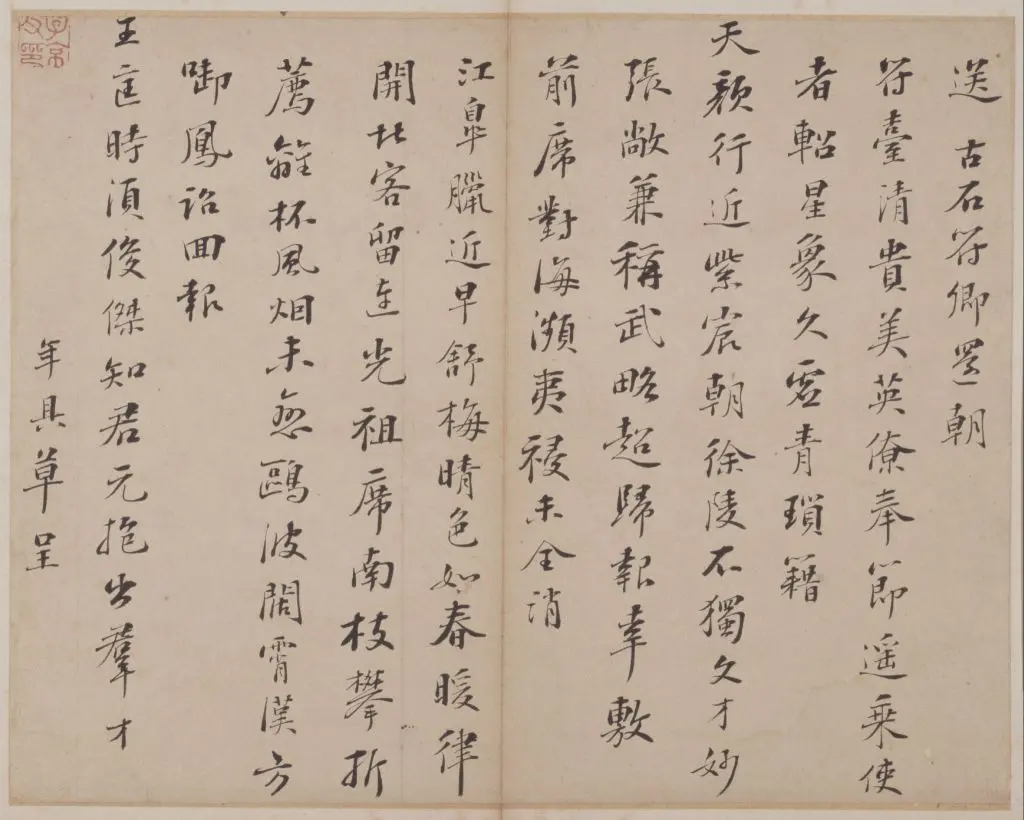 送 古石符卿還朝
符臺清貴美英僚奉節遥乘使
者軺星象久虛青瑣籍
天顏行近紫宸朝徐陵不獨文才妙
張敞兼稱武略超歸報幸敷
前席對海瀕夷祲未全消
江皐臘近早舒梅晴色如春暖律
開北客留連光祖席南枝攀折
薦離杯風烟未鷗波闊霄漢方
啣鳳詔囬報
王匡時須俊傑知君元抱出羣才
年具草呈